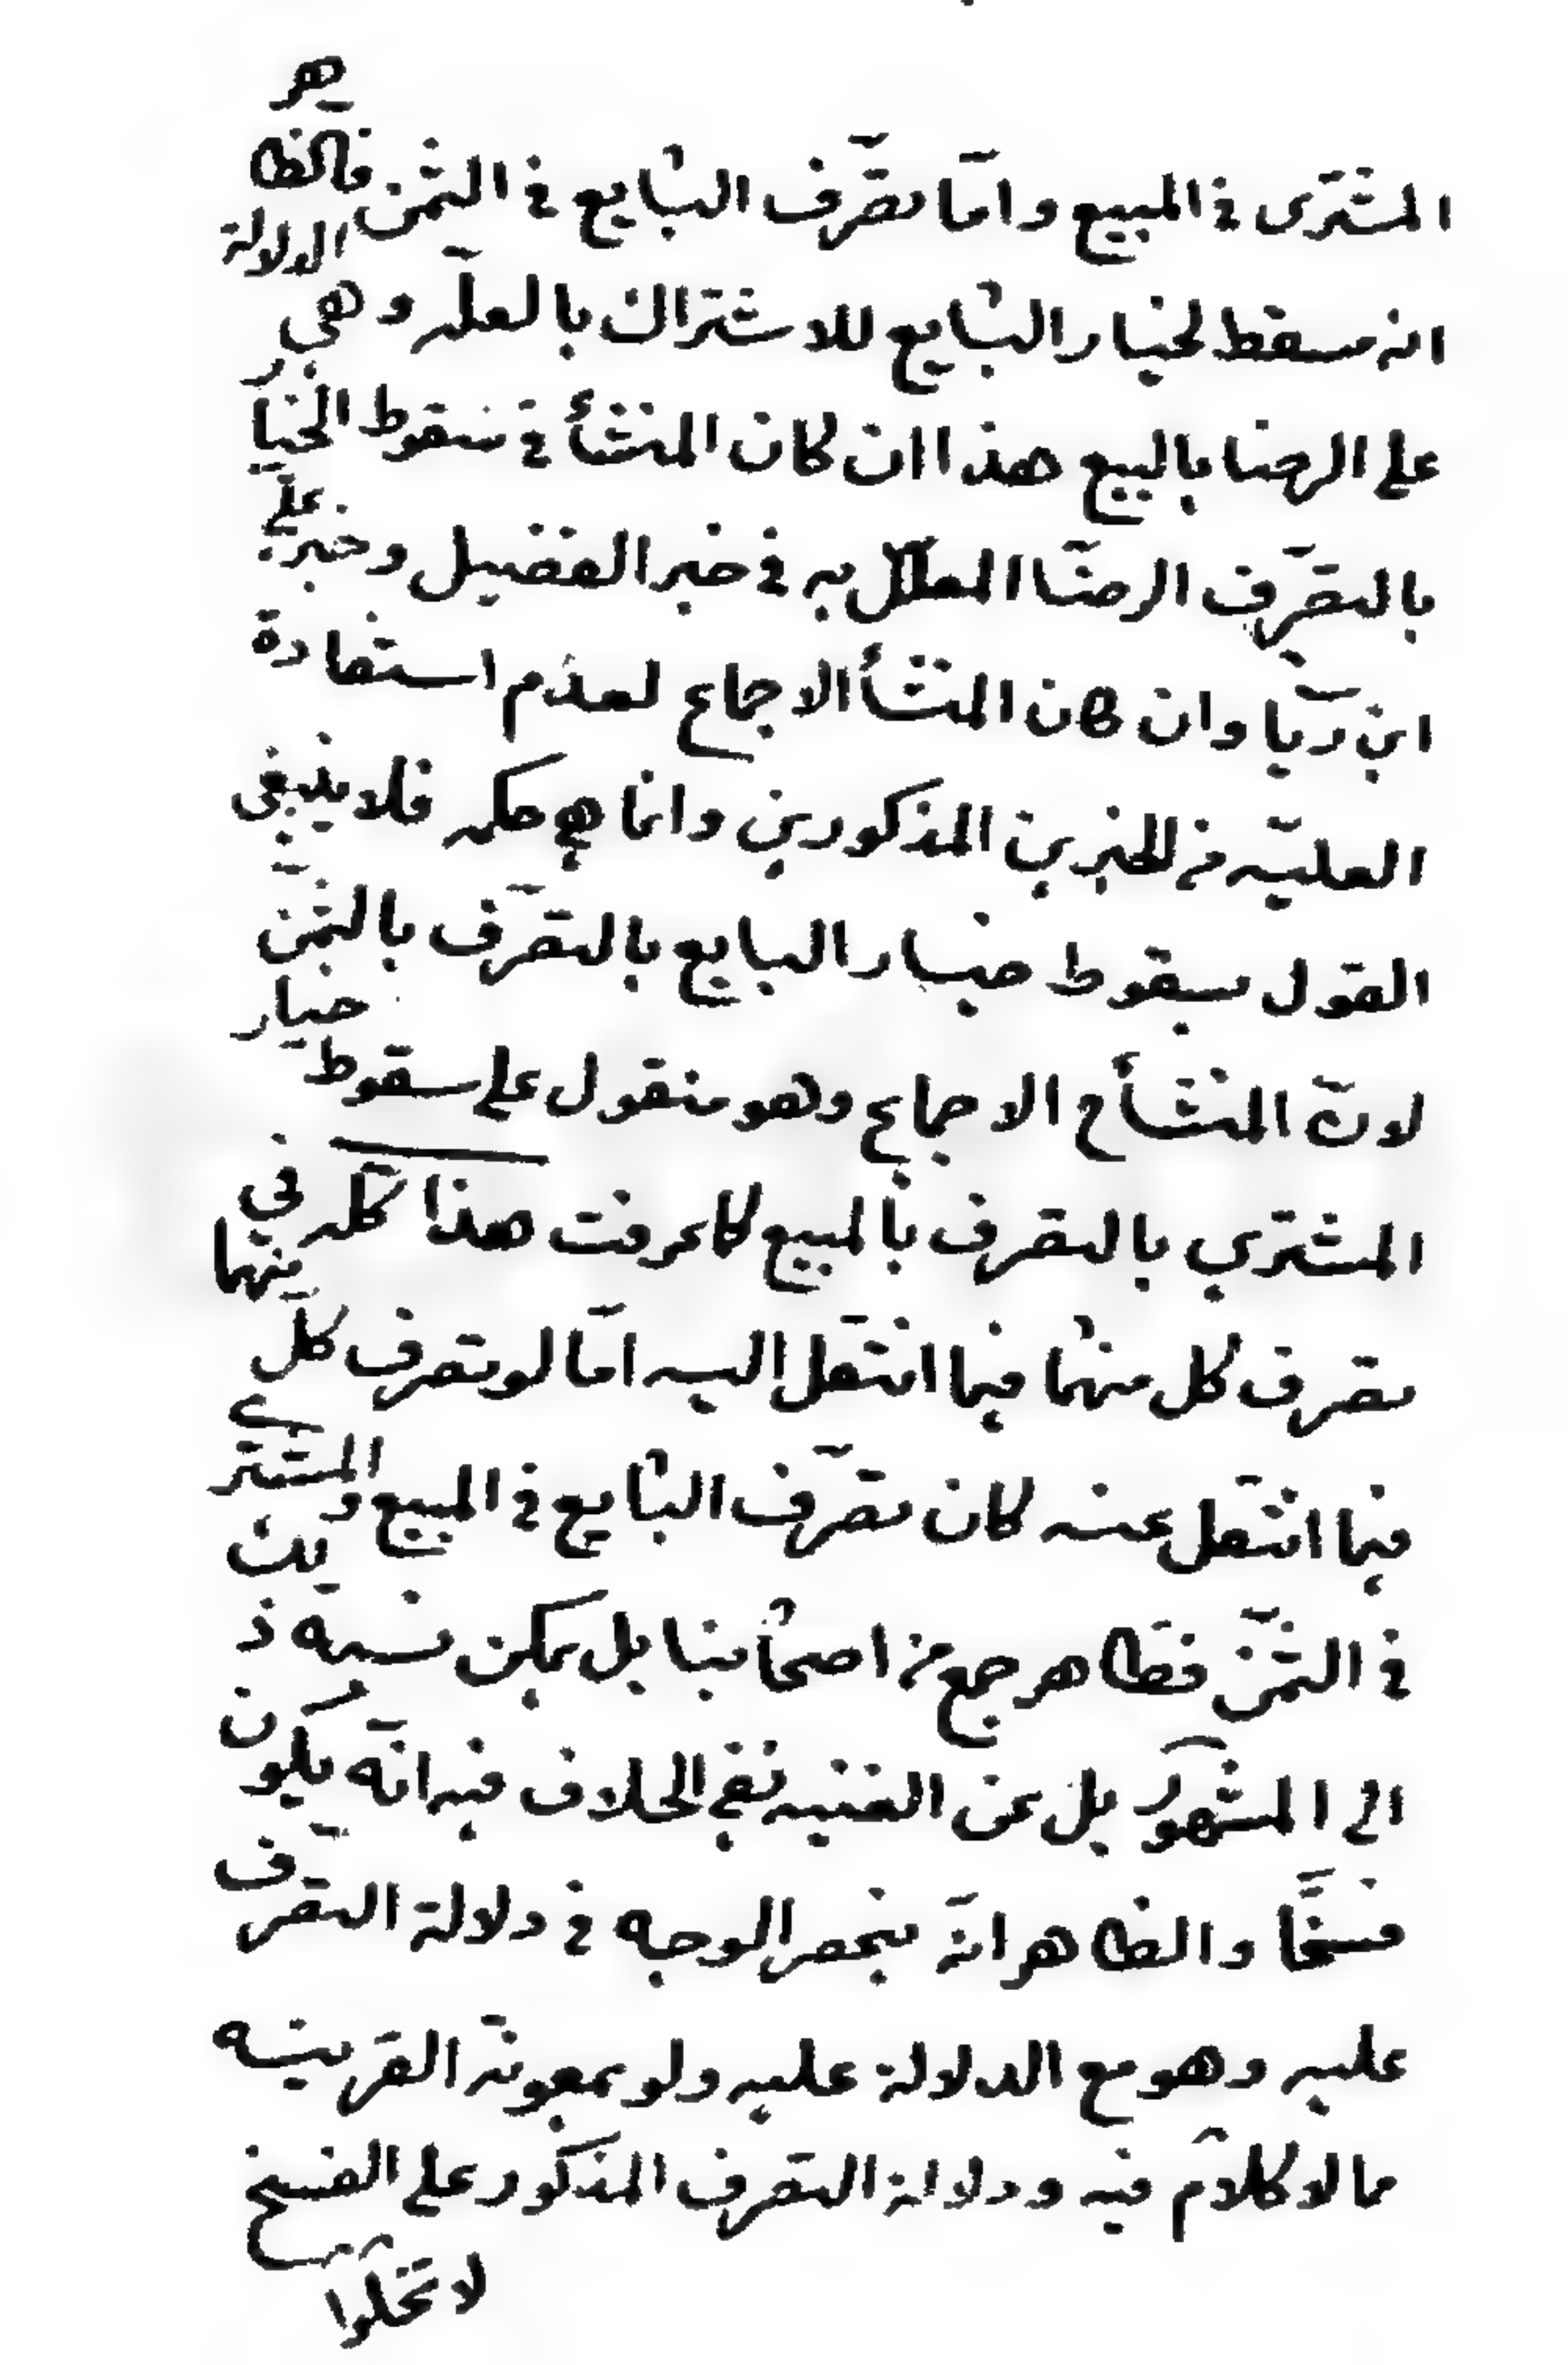 المشترى في المبيع واما تصرّف البايع في الثمن فالظاهر
انه مسقط لخيار البايع للاشتراك بالعلّه وهي الدلالة
على الرضا بالبيع هذا ان كان المنشأ في سقوط الخيار
بالتصرّف الرضا المعلل به في خبر الفضيل وخبر عليّ
ابن ريّا وان كان المنشأ الاجماع لعدم استفادة
العليّه من الخبرين المذكورين وانما هو حكمه فلا ينبغي
القول بسقوط خيار البايع بالتصرّف بالثمن
لانّ المنشأ ح الاجماع وهو منقول على سقوط خيار
المشتري بالتصرف بالمبيع كما عرفت هذا كلّه في
تصرف كل منهما فيما انتقل اليه امّا لو تصرف كلّ منهما
فيما انتقل عنه كان تصرّف البايع في المبيع والمشتري
في الثمن فظاهر جمع من اصحابنا بل يمكن نسبة ذ
الى المشهور بل عن الغنيه نفي الخلاف فيه انّه يكون
فسخًا والظاهر انّه ينحصر الوجه في دلالة التصرّف
عليه وهو مع الدلالة عليه ولو بمعونة القرينه
مما لا كلام فيه ودلالة التصرف المذكور على الفسخ
لا تخلوا